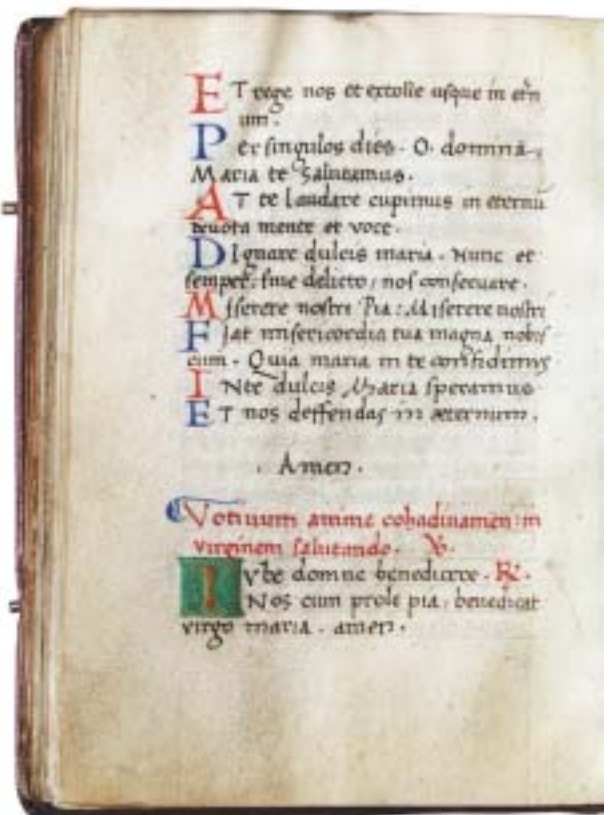 ET rege nos et extolle usque in etn
um.
Per singulos dies. O. domina.
Maria te Salutamus.
AT te laudare cupimus in eternū
devota mente et voce.
DIgnare dulcis maria. Nunc et
semper: sine delicto, nos conservare.
Miserere nostri Pia: Miserere nostri
Fiat misericordia tua magna nobis
cum. Quia maria in te confidimus
INte dulcis Maria speramus
ET nos deffendas in æternum.
. Amen.
Votivum anime in
virginem salutando. V.
Iube domne benedicere. R.
Nos cum prole pia, benedicat
virgo maria. amen.